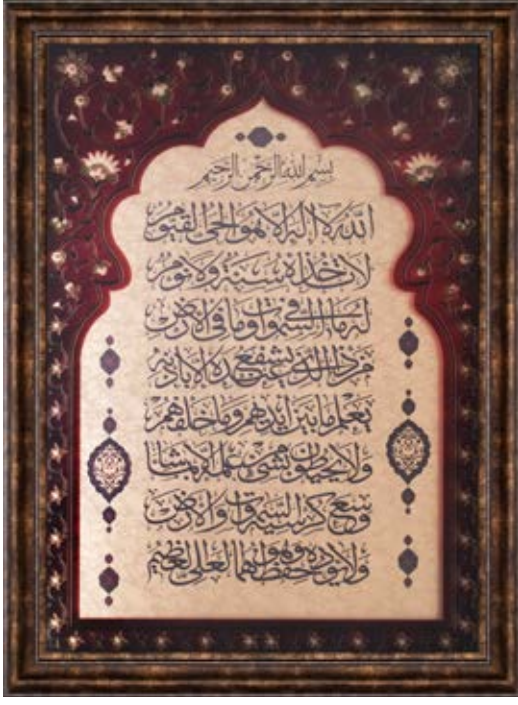 بسم الله الرحمن الرحيم
الله لا اله الا هو الحي القيوم
لا تاخذه سنة ولا نوم
له ما في السموات وما في الارض
من ذا الذي يشفع عنده الا باذنه
يعلم ما بين ايديهم وما خلفهم
ولا يحيطون بشئ من علمه الا بما شا
وسع كرسيه السموات والارض
ولا يؤده حفظهما وهو العلي العظيم